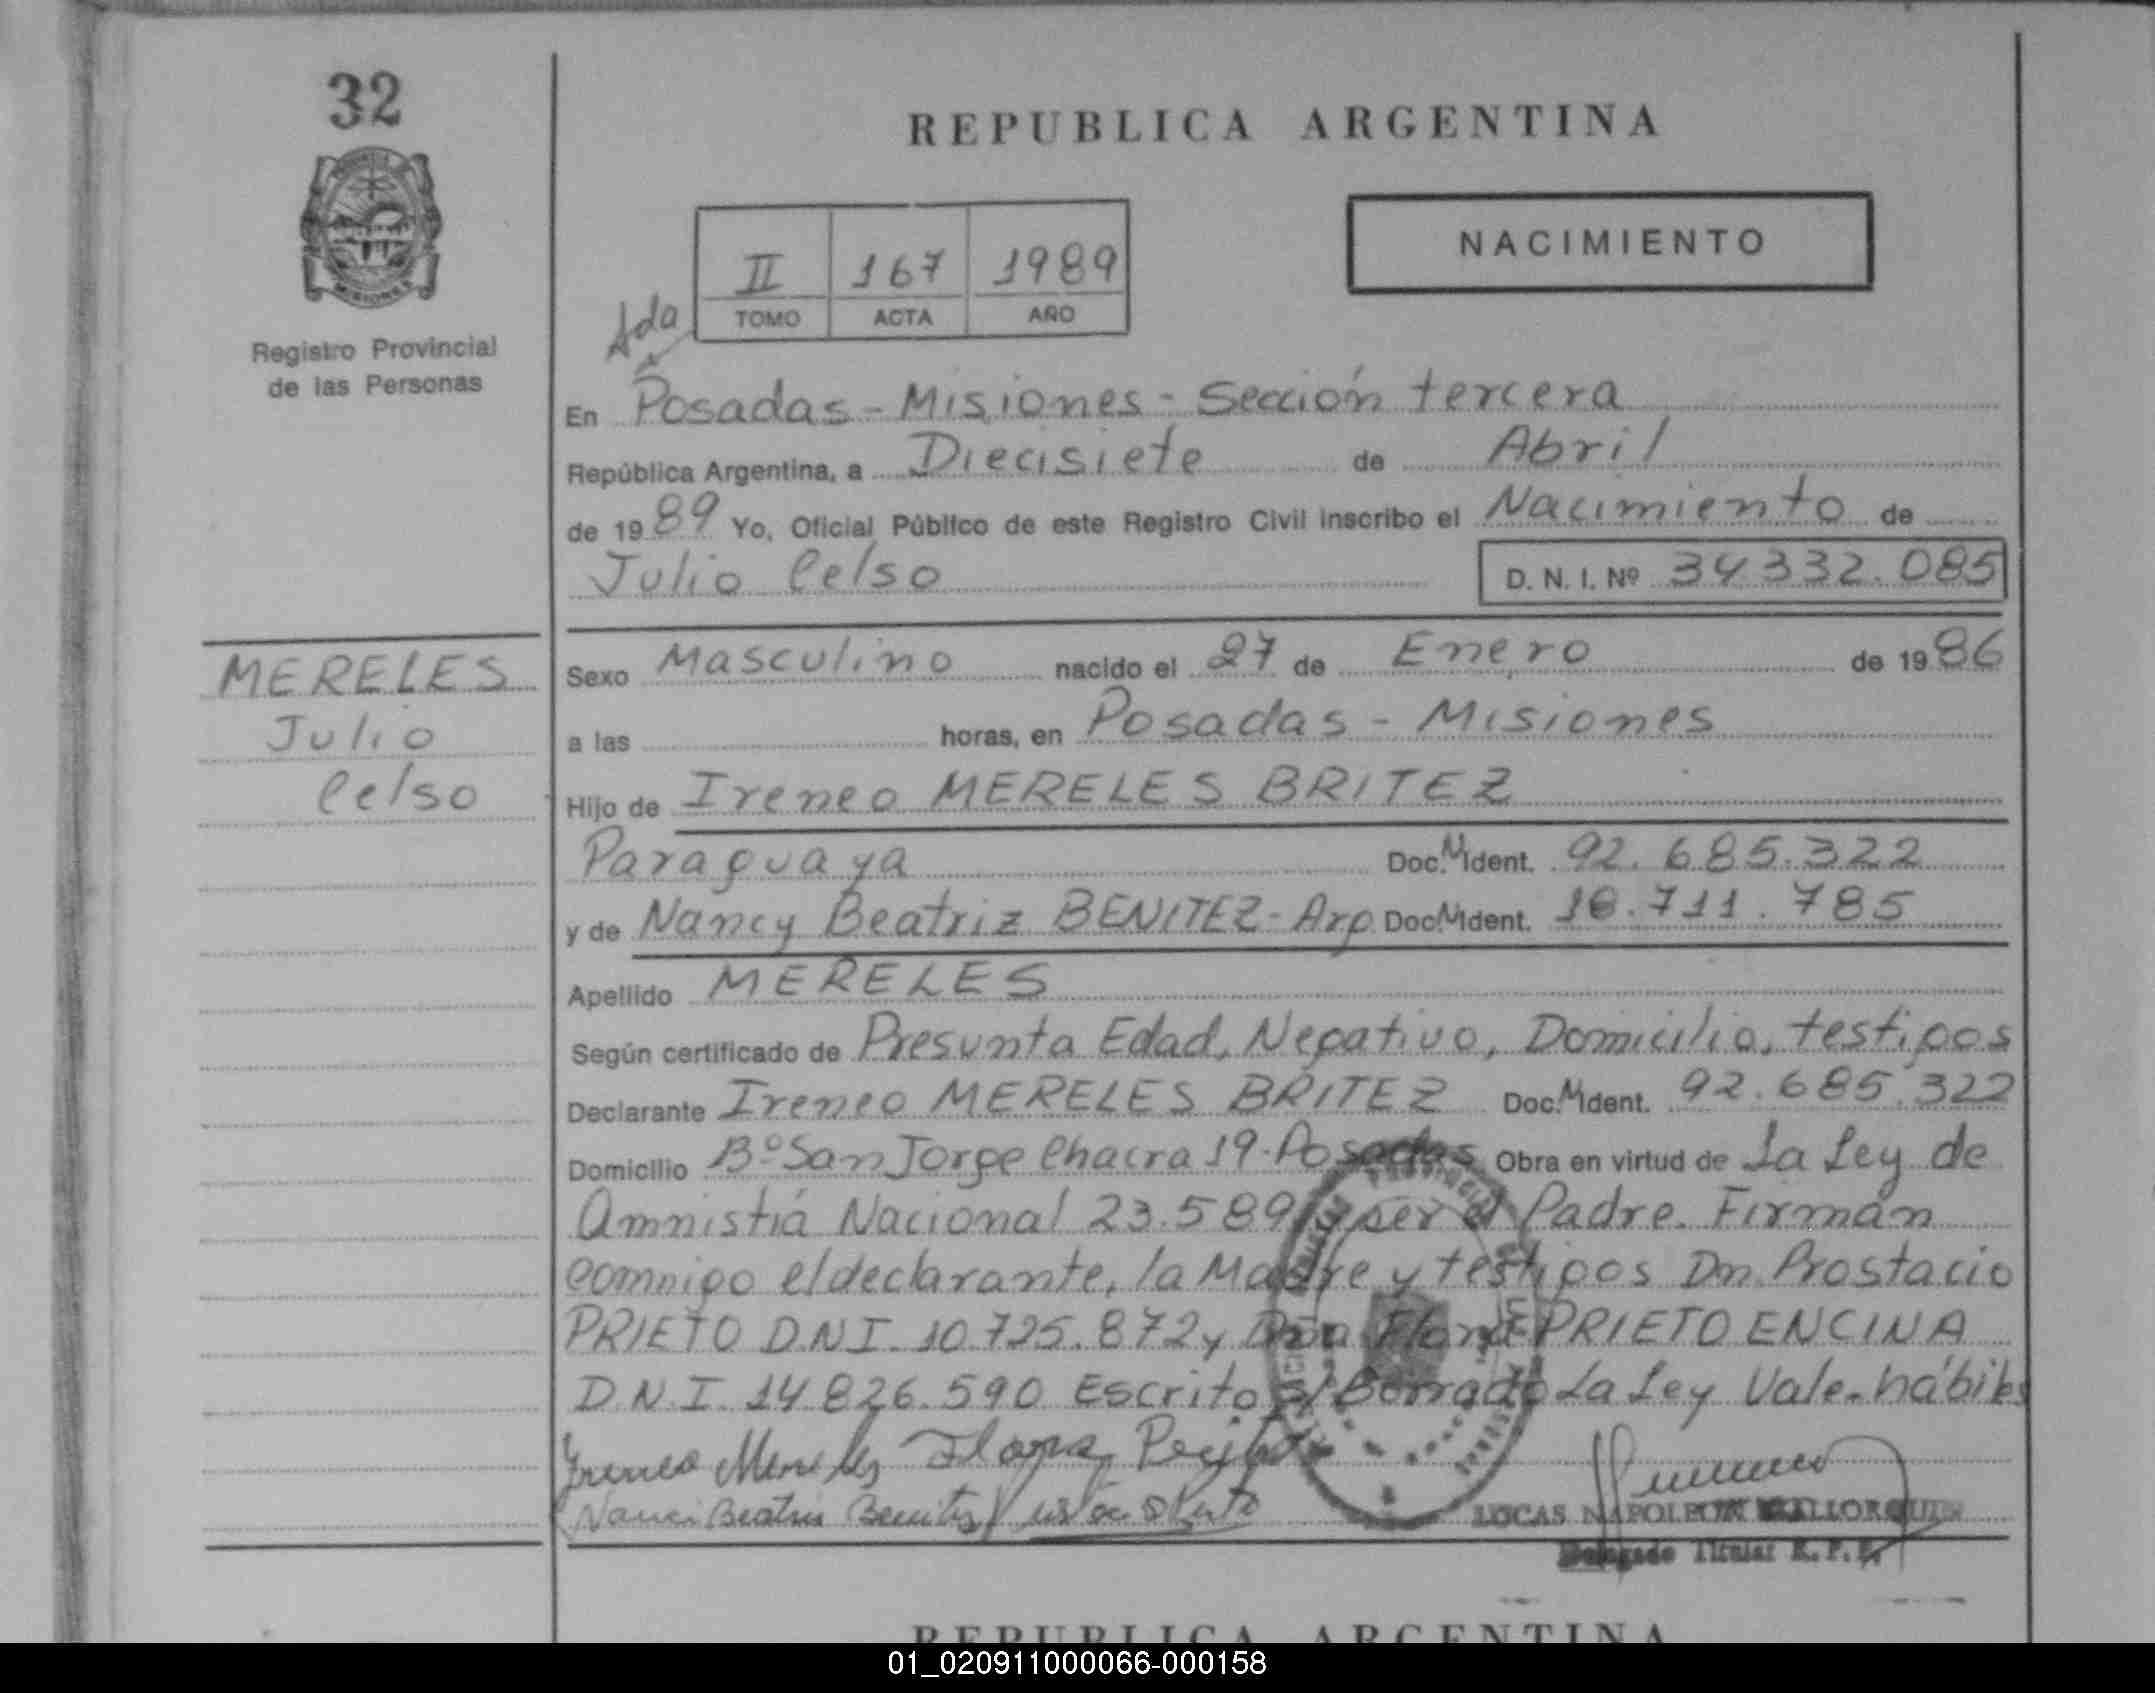 32
REPUBLICA ARGENTINA
NACIMIENTO
II 167 1989
TOMO ACTA AÑO
Ada
MISIONES
Registro Provincial
de las Personas
En Posadas - Misiones - Sección tercera
República Argentina, a Diecisiete de Abril
de 1989 Yo, Oficial Público de este Registro Civil inscribo el Nacimiento de
Julio Celso D. N. I. Nº 34332.085
MERELES
Julio
Celso
Sexo Masculino nacido el 27 de Enero de 1986
a las horas, en Posadas - Misiones
Hijo de Ireneo MERELES BRITEZ
Paraguaya Doc. N Ident. 92.685.322
y de Nancy Beatriz BENITEZ - Arg. Doc. N Ident. 18.711.785
Apellido MERELES
Según certificado de Presunta Edad, Negativo, Domicilio, testigos
Declarante Ireneo MERELES BRITEZ Doc. N Ident. 92.685.322
Domicilio Bº San Jorge Chacra 19 - Posadas Obra en virtud de La Ley de
Amnistiá Nacional 23.589 y ser el Padre. Firmán
comnigo el declarante, la Madre y testigos Dn. Prostacio
PRIETO D.N.I. 10.725.872 y Dña Flora PRIETO ENCINA
D.N.I. 14.826.590 Escrito s/ Borrado La Ley Vale - hábiles
Ireneo Mereles
LUCAS NAPOLEON MALLORQUIN
Delegado Titular R. P. P.
REPUBLICA ARGENTINA
01_020911000066-000158